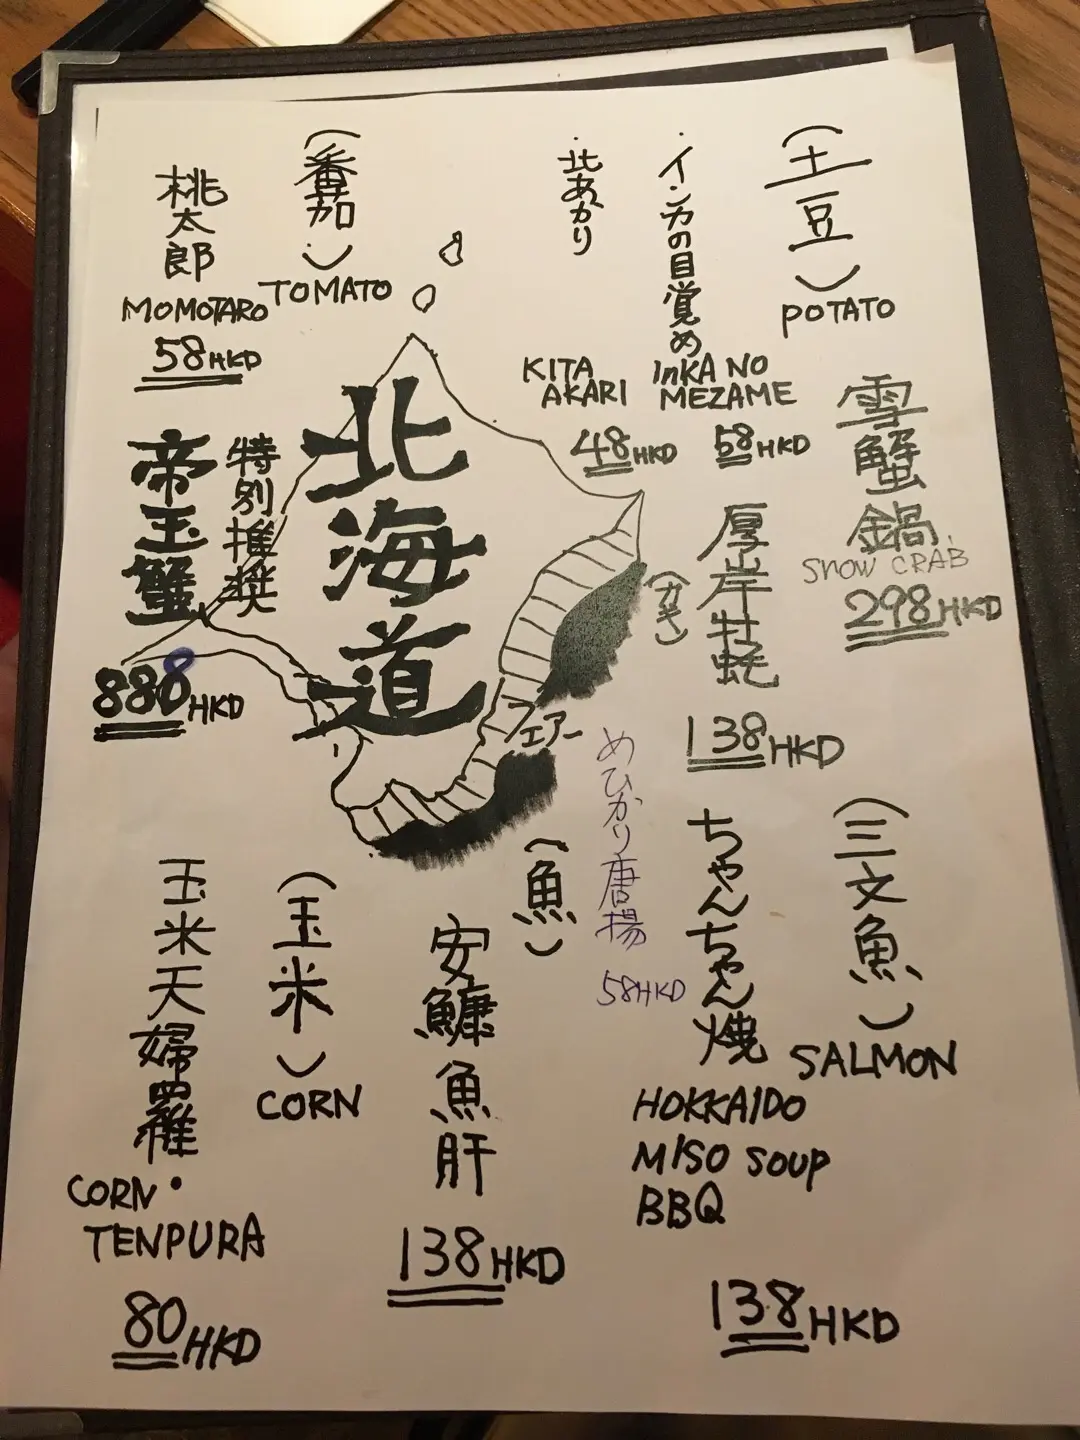 （土豆）
POTATO
・インカの目覚め
INKA NO
MEZAME
58HKD
・北あかり
KITA
AKARI
48HKD
（番茄）
TOMATO
桃太郎
MOMOTARO
58HKD
雪蟹鍋
SNOW CRAB
298HKD
厚岸牡蛎
（カキ）
138HKD
北海道
フェアー
特別推奨
帝王蟹
8808HKD
（三文魚）
SALMON
ちゃんちゃん焼
HOKKAIDO
MISO SOUP
BBQ
138HKD
めひかり唐揚
58HKD
（魚）
安鱇魚肝
138HKD
（玉米）
CORN
玉米天婦羅
CORN・
TENPURA
80HKD